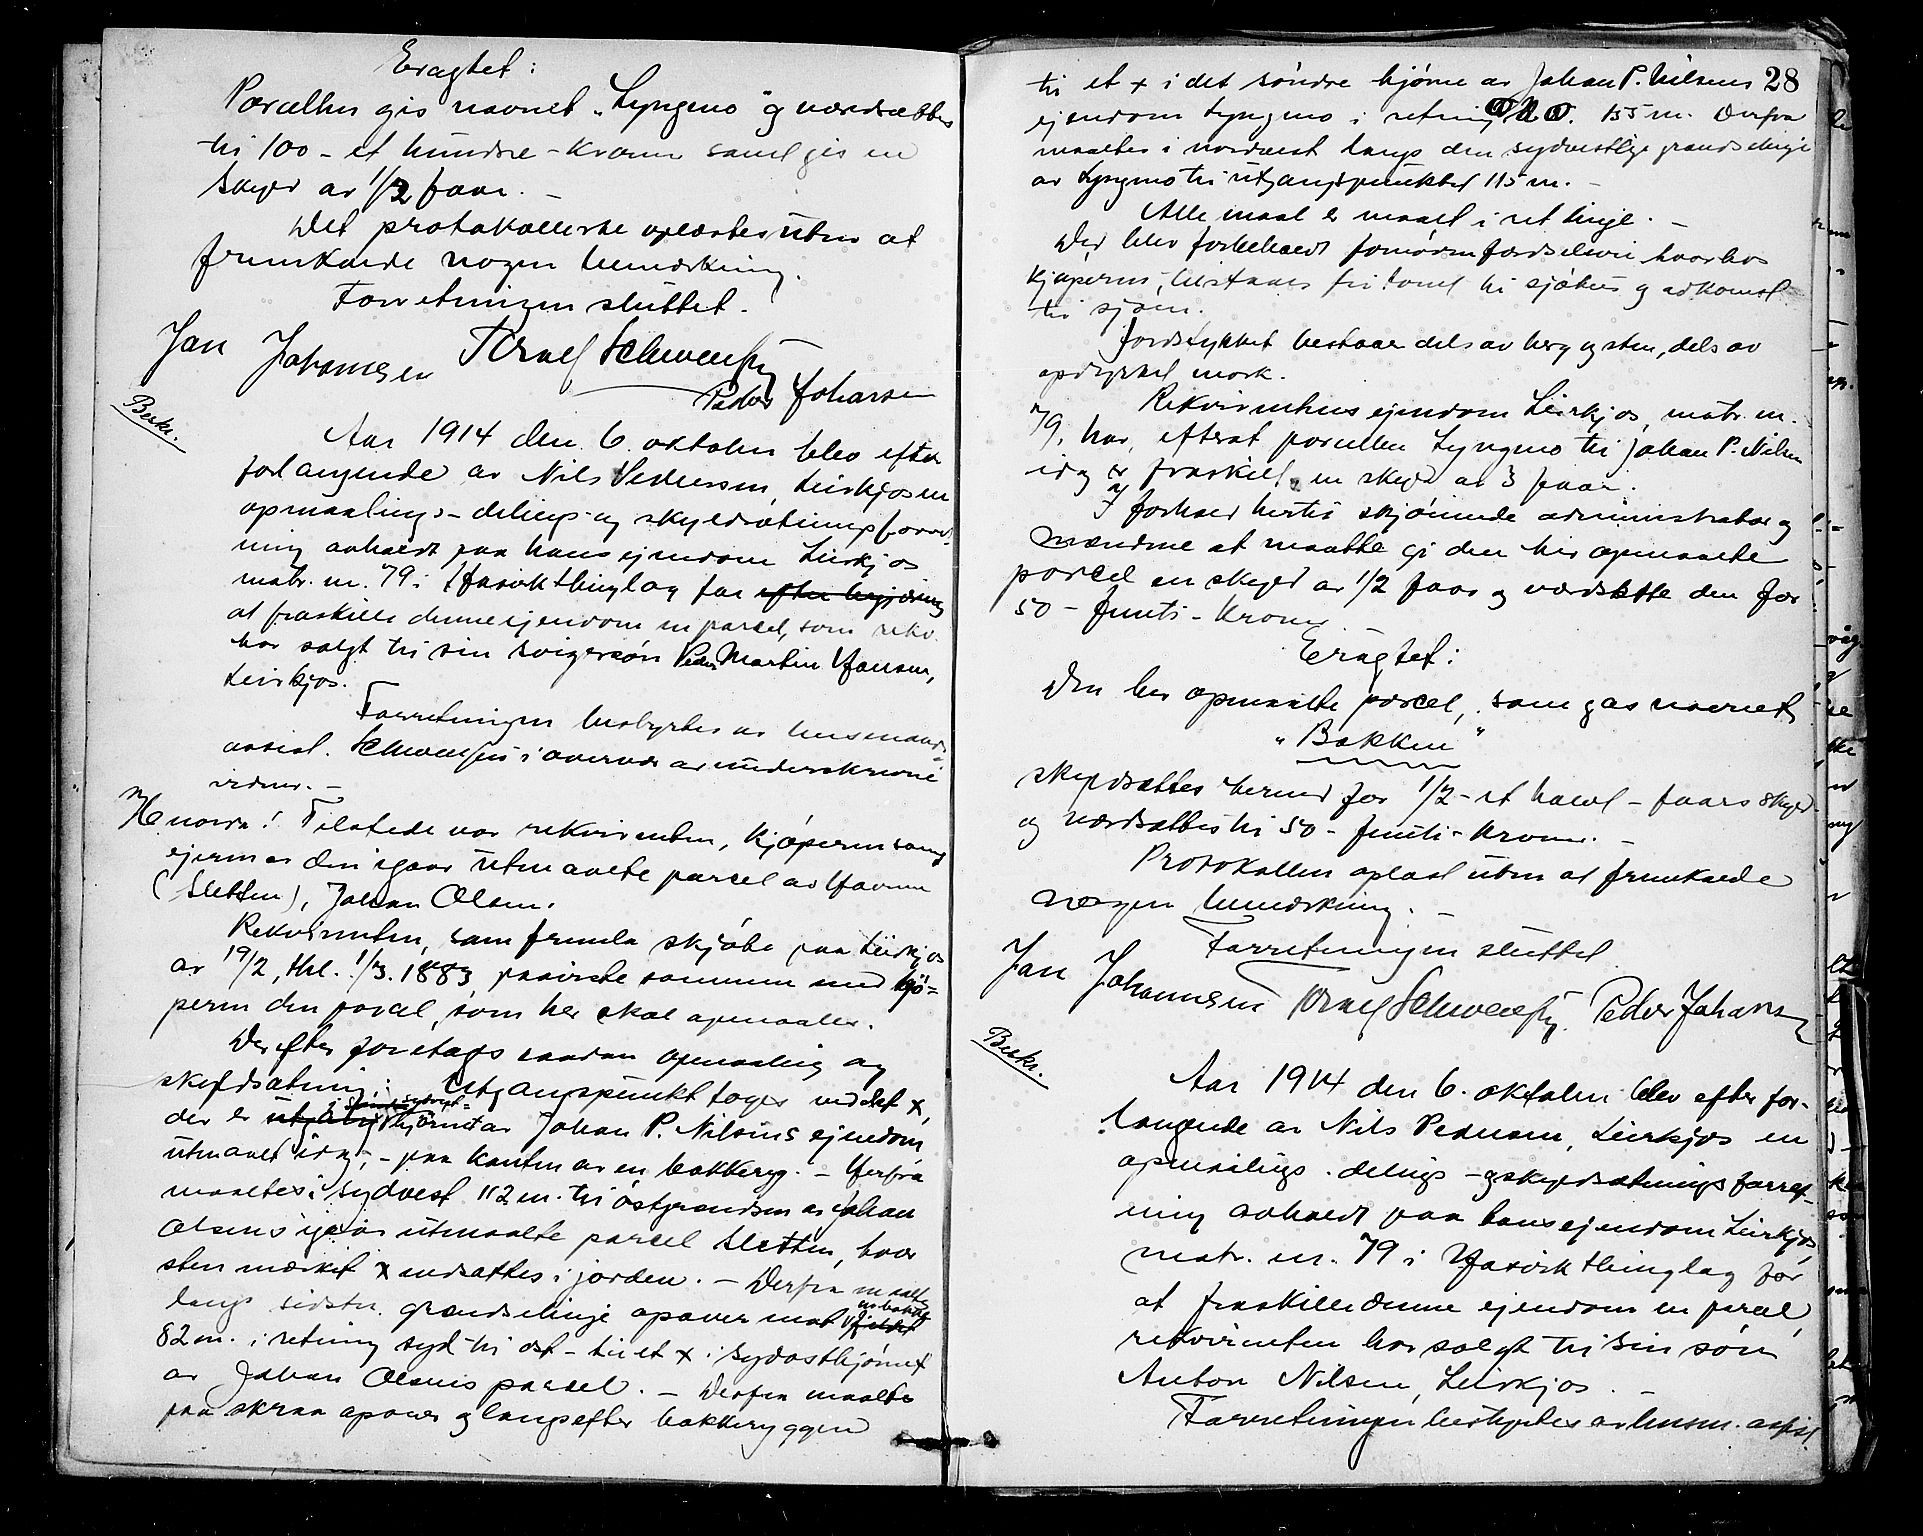 Eragtet:
Parcellen gis navnet „Lyngmo" og værdsættes
til 100 - et hundre - kroner samt gis en
skyld av 1/2 faar. -
Det protokollerte oplæstes uten at
fremkalde nogen bemerkning.
Forretningen sluttet.
Jan Johannesen Schwensby
Peder Johansen
Beskr.
Aar 1914 den 6. oktober blev efter
forlangende av Nils Pedersen, Leirkjos en
opmaalings - delings - og skyldsætningsforret-
ning avholdt paa hans ejendom Leirkjos
matr. nr. 79 i thinglag for efter begjæring
at fraskille denne ejendom en parcel, som rekv.
har solgt til sin svigersøn Peder Martin Hansen,
Leirkjos.
Forretningen bestyrtes av lensmands-
assist. Schwensby i overvær av underskrevne
vidner. -
Tilstede var rekvirenten, kjøperen samt
ejeren av den igaar utmaalte parcel av
(Sletten), Johan Olsen.
Rekvirenten, som fremla skjøte paa Leirkjos
av 19/2, thl. 1/3. 1883, paaviste sammen med kjø-
peren den parcel, som her skal opmaales.
Derefter foretoges saadan opmaaling og
skyldsætning: Utgangspunkt toges ved det x,
der er i søndre hjørnet av Johan P. Nilsens ejendom
utmaalt idag, - paa kanten av en bakkeryg. - Herfra
maaltes i sydvest 112 m. til østgrændsen av Johan
Olsens igaar utmaalte parcel Sletten, hvor
sten merket x nedsattes i jorden. - Derfra maaltes
langs sidstn. grændselinje opover mot bakken
82 m. i retning syd til øst - til et x i sydøsthjørnet
av Johan Olsens parcel. - Derfra maaltes
paa skraa opover og langsefter bakkeryggen
28
til et x i det søndre hjørne av Johan P. Nilsens
ejendom Lyngmo i retning ONO. 155 m. Derfra
maaltes i nordvest langs den sydvestlige grændselinje
av Lyngmo til utgangspunktet 115 m. -
Alle maal er maalt i ret linje. -
Der blev forbeholdt fornøden færdselsvei hvorhos
kjøperen, tilstaaes fri tomt til sjøhus og adkomst
til sjøen.
Jordstykket bestaar dels av berg og sten, dels av
opdyrket mark.
Rekvirentens ejendom Leirkjos, matr. nr.
79, har, efterat parcellen Lyngmo til Johan P. Nilsen
idag er fraskilt, en skyld av 3 faar.
I forhold hertil skjønnede administrator og
mændene at maatte gi den her opmaalte
parcel en skyld av 1/2 faar og værdsætte den for
50 - femti - kroner.
Eragtet:
Den her opmaalte parcel, som gas navnet
„Bakken"
skyldsættes herved for 1/2 - et halvt - faars skyld
og værdsættes til 50 - femti - kroner. -
Protokollen oplæst uten at fremkalde
nogen bemerkning. -
Forretningen sluttet
Jan Johannesen Schwensby Peder Johansen
Beskr.
Aar 1914 den 6. oktober blev efter for-
langende av Nils Pedersen, Leirkjos en
opmaalings - delings - og skyldsætningsforret-
ning avholdt paa hans ejendom Leirkjos,
matr. nr. 79 i thinglag for
at fraskille denne ejendom en parcel,
rekvirenten har solgt til sin søn
Anton Nilsen, Leirkjos. -
Forretningen bestyrtes av lensm. assist.